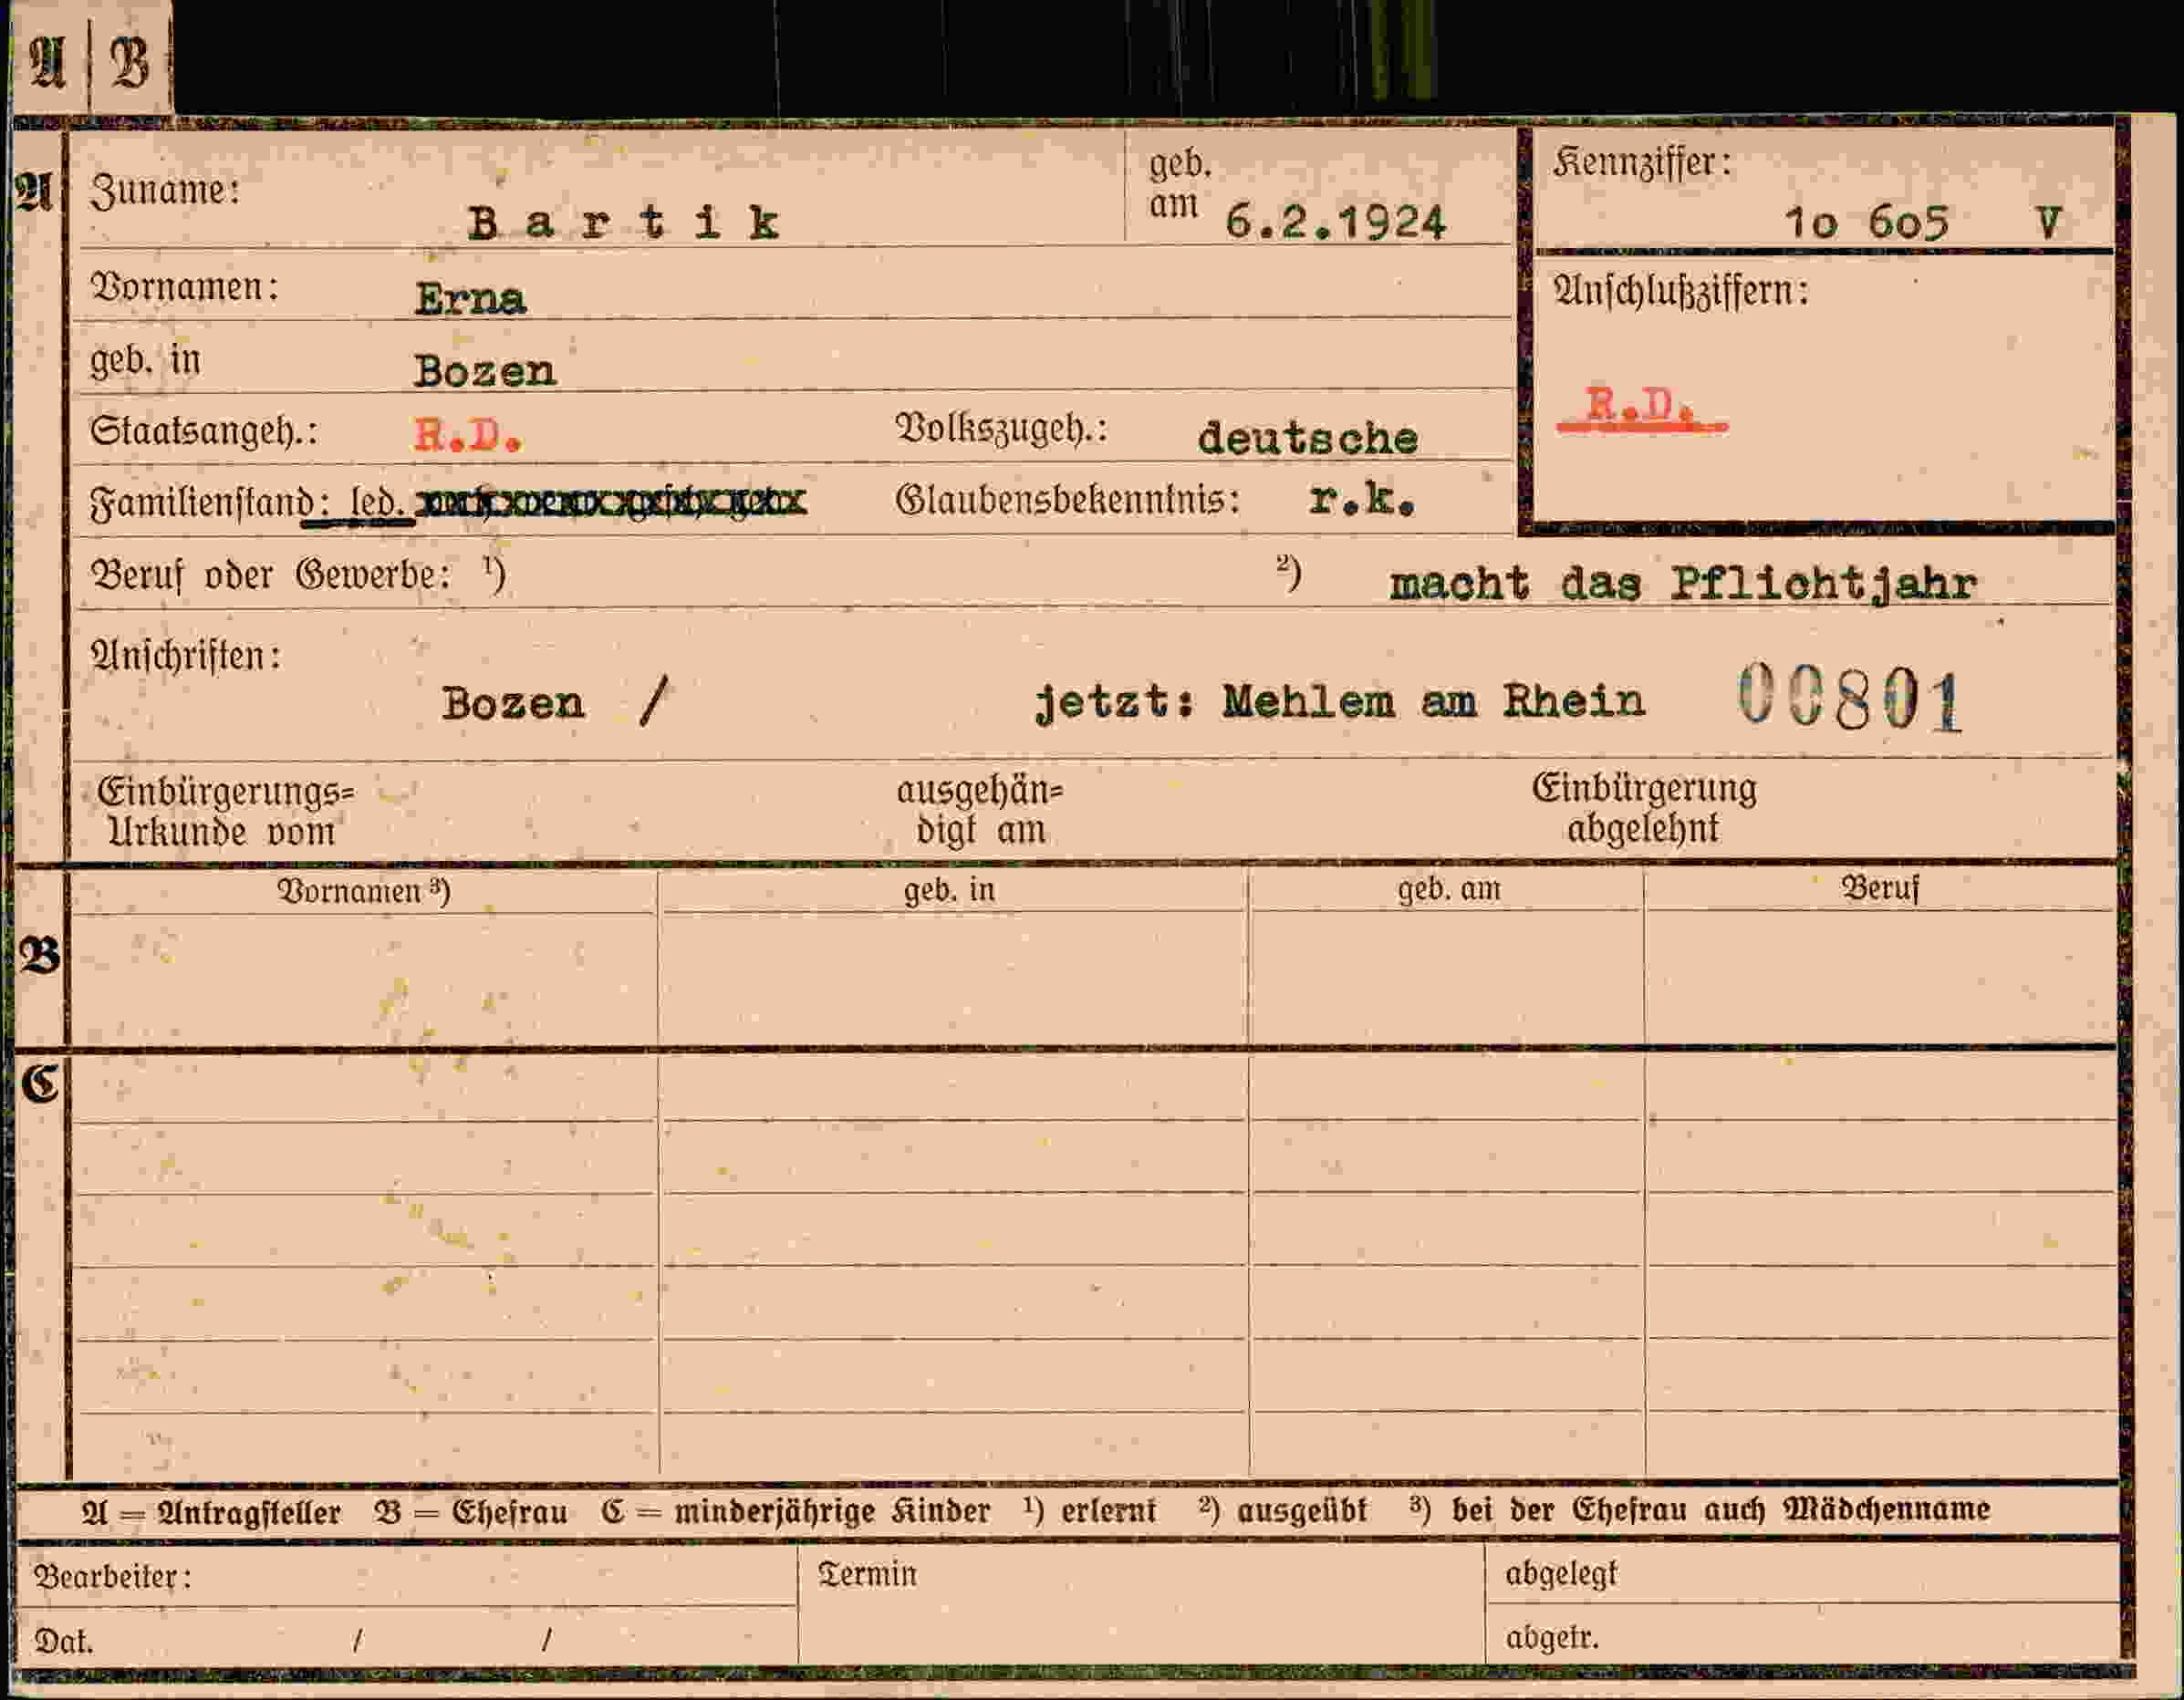 A | B
A Zuname: Bartik geb. am 6.2.1924 Kennziffer: 1o 6o5 V
Vornamen: Erna Anschlußziffern:
geb. in Bozen
R.D.
Staatsangeh.: R.D. Volkszugeh.: deutsche
Familienstand: led. Glaubensbekenntnis: r.k.
Beruf oder Gewerbe: ¹) ²) macht das Pflichtjahr
Anschriften:
Bozen / jetzt: Mehlem am Rhein 00801
Einbürgerungs= ausgehän= Einbürgerung
Urkunde vom digt am abgelehnt
Vornamen ³) geb. in geb. am Beruf
B
C
A = Antragsteller B = Ehefrau C = minderjährige Kinder ¹) erlernt ²) ausgeübt ³) bei der Ehefrau auch Mädchenname
Bearbeiter: Termin abgelegt
Dat. / / abgetr.